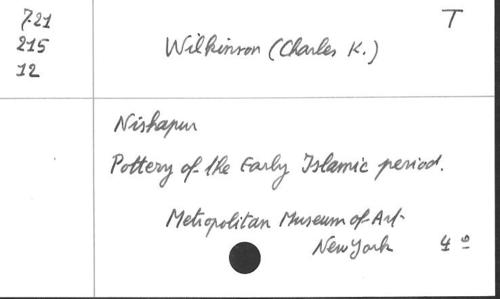 7.21
215
12
T
Wilkinson (Charles K.)
Nishapur
Pottery of the Early Islamic period.
Metropolitan Museum of Art
New York 4º